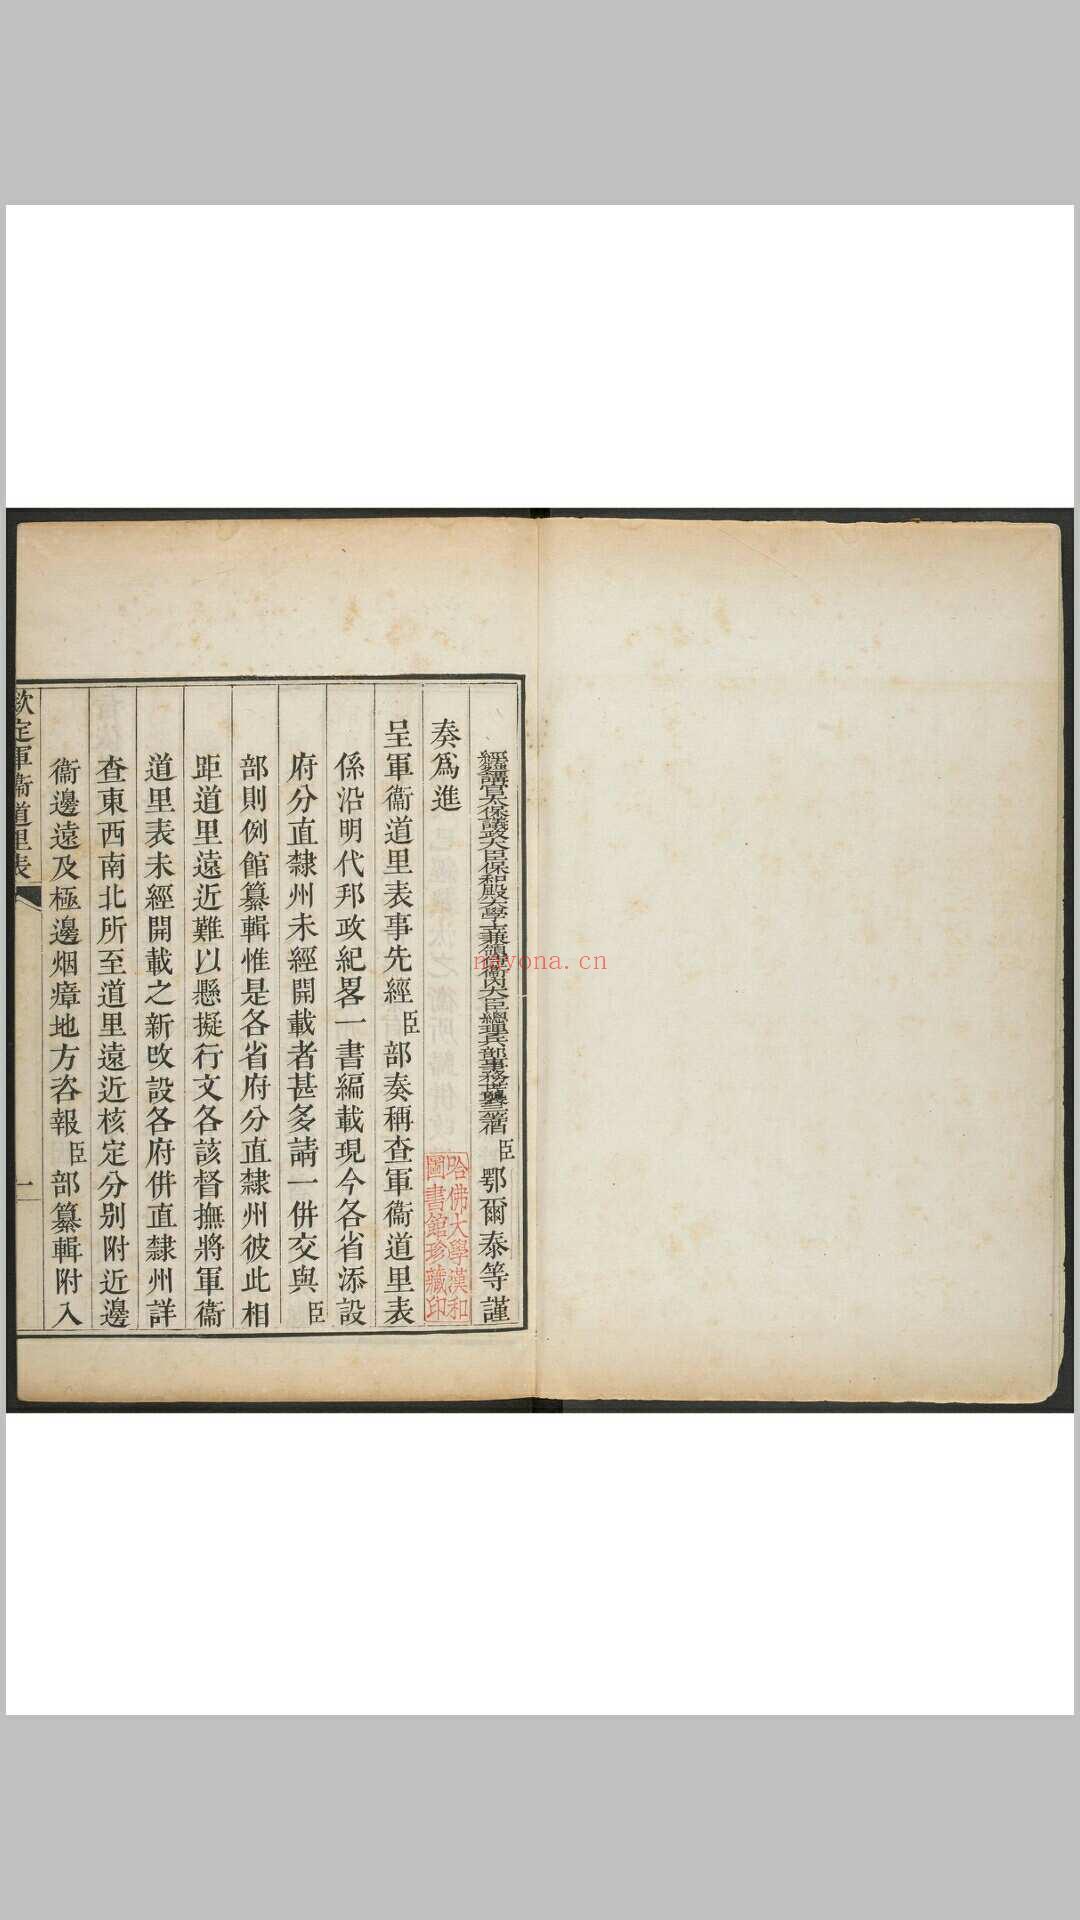 經筵講官太保議政大臣保和殿大學士兼領侍衛內大臣總理兵部事務世襲三等伯臣鄂爾泰等謹
奏為進
呈軍衞道里表事先經臣部奏稱查軍衞道里表
係沿明代邦政紀畧一書編載現今各省添設
府分直隸州未經開載者甚多請一併交與臣
部則例館纂輯惟是各省府分直隸州彼此相
距道里遠近難以懸擬行文各該督撫將軍衞
道里表未經開載之新改設各府併直隸州詳
查東西南北所至道里遠近核定分別附近邊
衞邊遠及極邊烟瘴地方咨報臣部纂輯附入
欽定軍衞道里表
一
哈佛大學漢和
圖書館珍藏印
nayona.cn